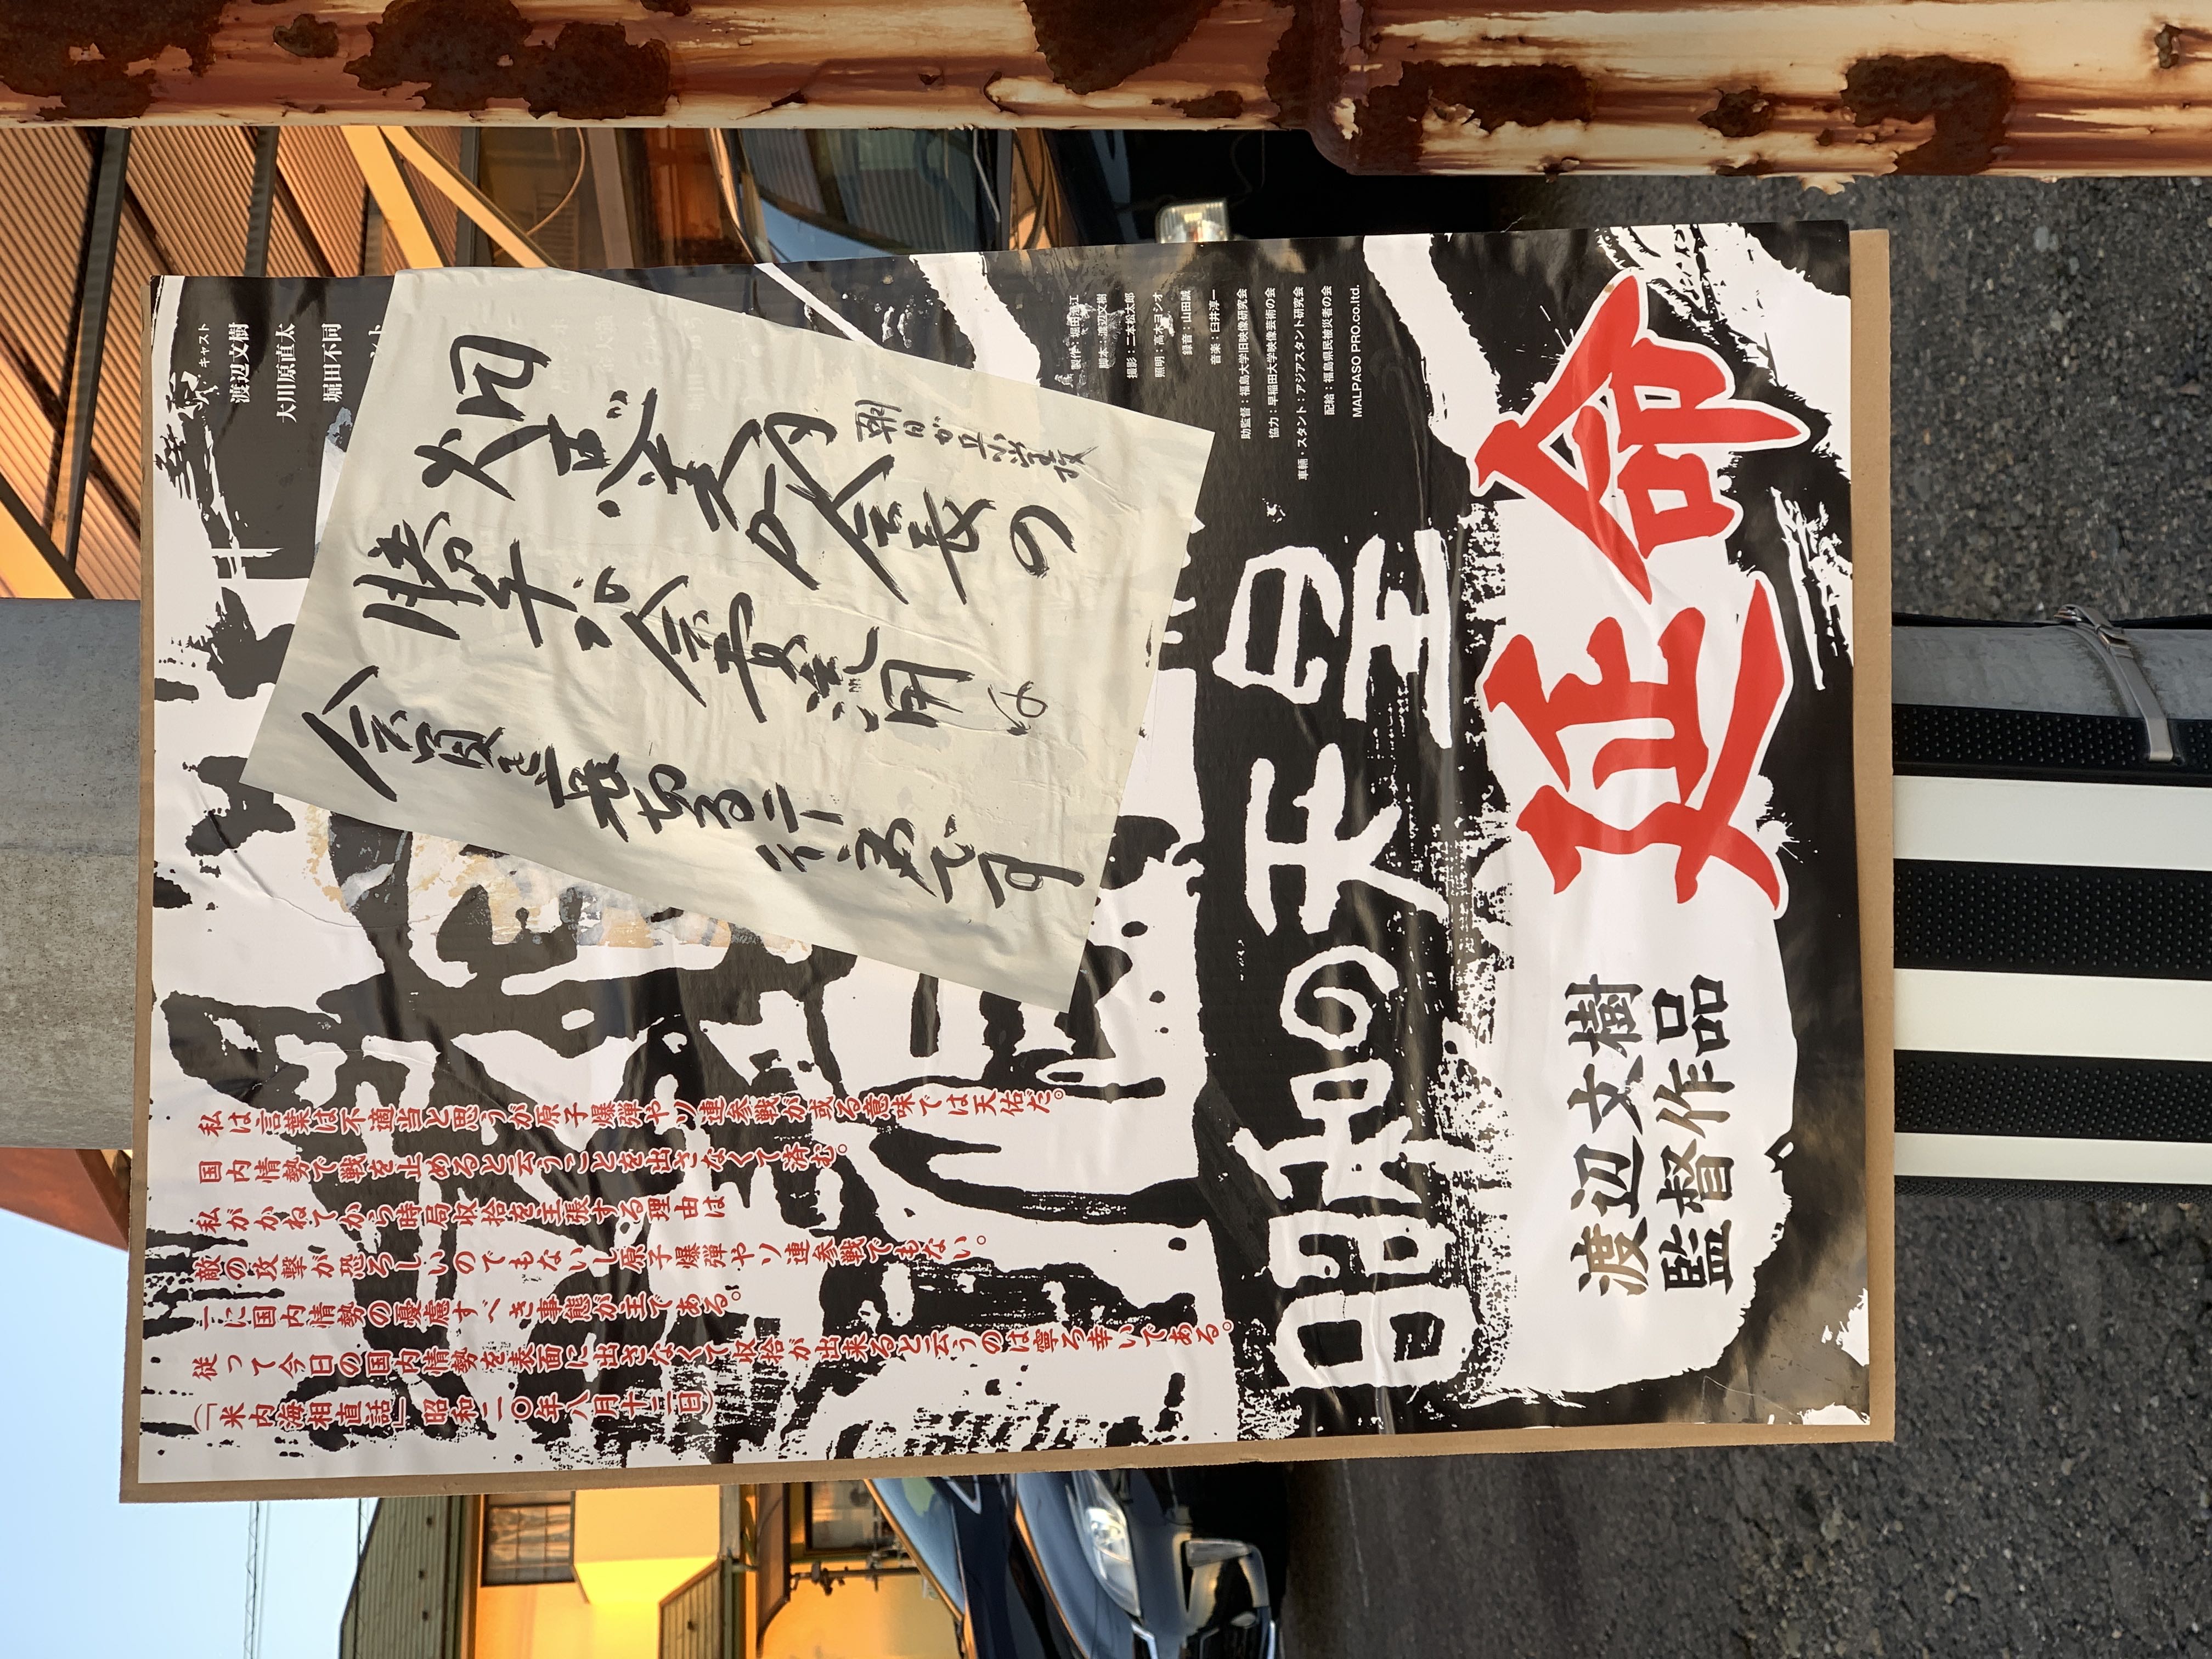 キャスト
渡辺文樹
大川原直太
堀田不同
会長の
朝日が丘小学校
勝手な会費流用は
です
私は言葉は不適当と思うが原子爆弾やソ連参戦が或る意味では天佑だ。
国内情勢で戦を止めると云うことを出さなくて済む。
私がかねてから時局収拾を主張する理由は
敵の攻撃が恐ろしいのでもないし原子爆弾やソ連参戦でもない。
一に国内情勢の憂慮すべき事態が主である。
従って今日の国内情勢を表面に出さなくて収拾が出来ると云うのは寧ろ幸いである。
(「米内海相直話」昭和二〇年八月十二日)
脚本：渡辺文樹
撮影：二本松太郎
照明：高木ヨシオ
録音：山田誠
音楽：臼井淳一
助監督：福島大学旧映像研究会
協力：早稲田大学映像芸術の会
車輌・スタント：アジアスタント研究会
配給：福島県民被災者の会
MALPASO PRO.co.ltd.
昭和の天皇
延命
渡辺文樹
監督作品